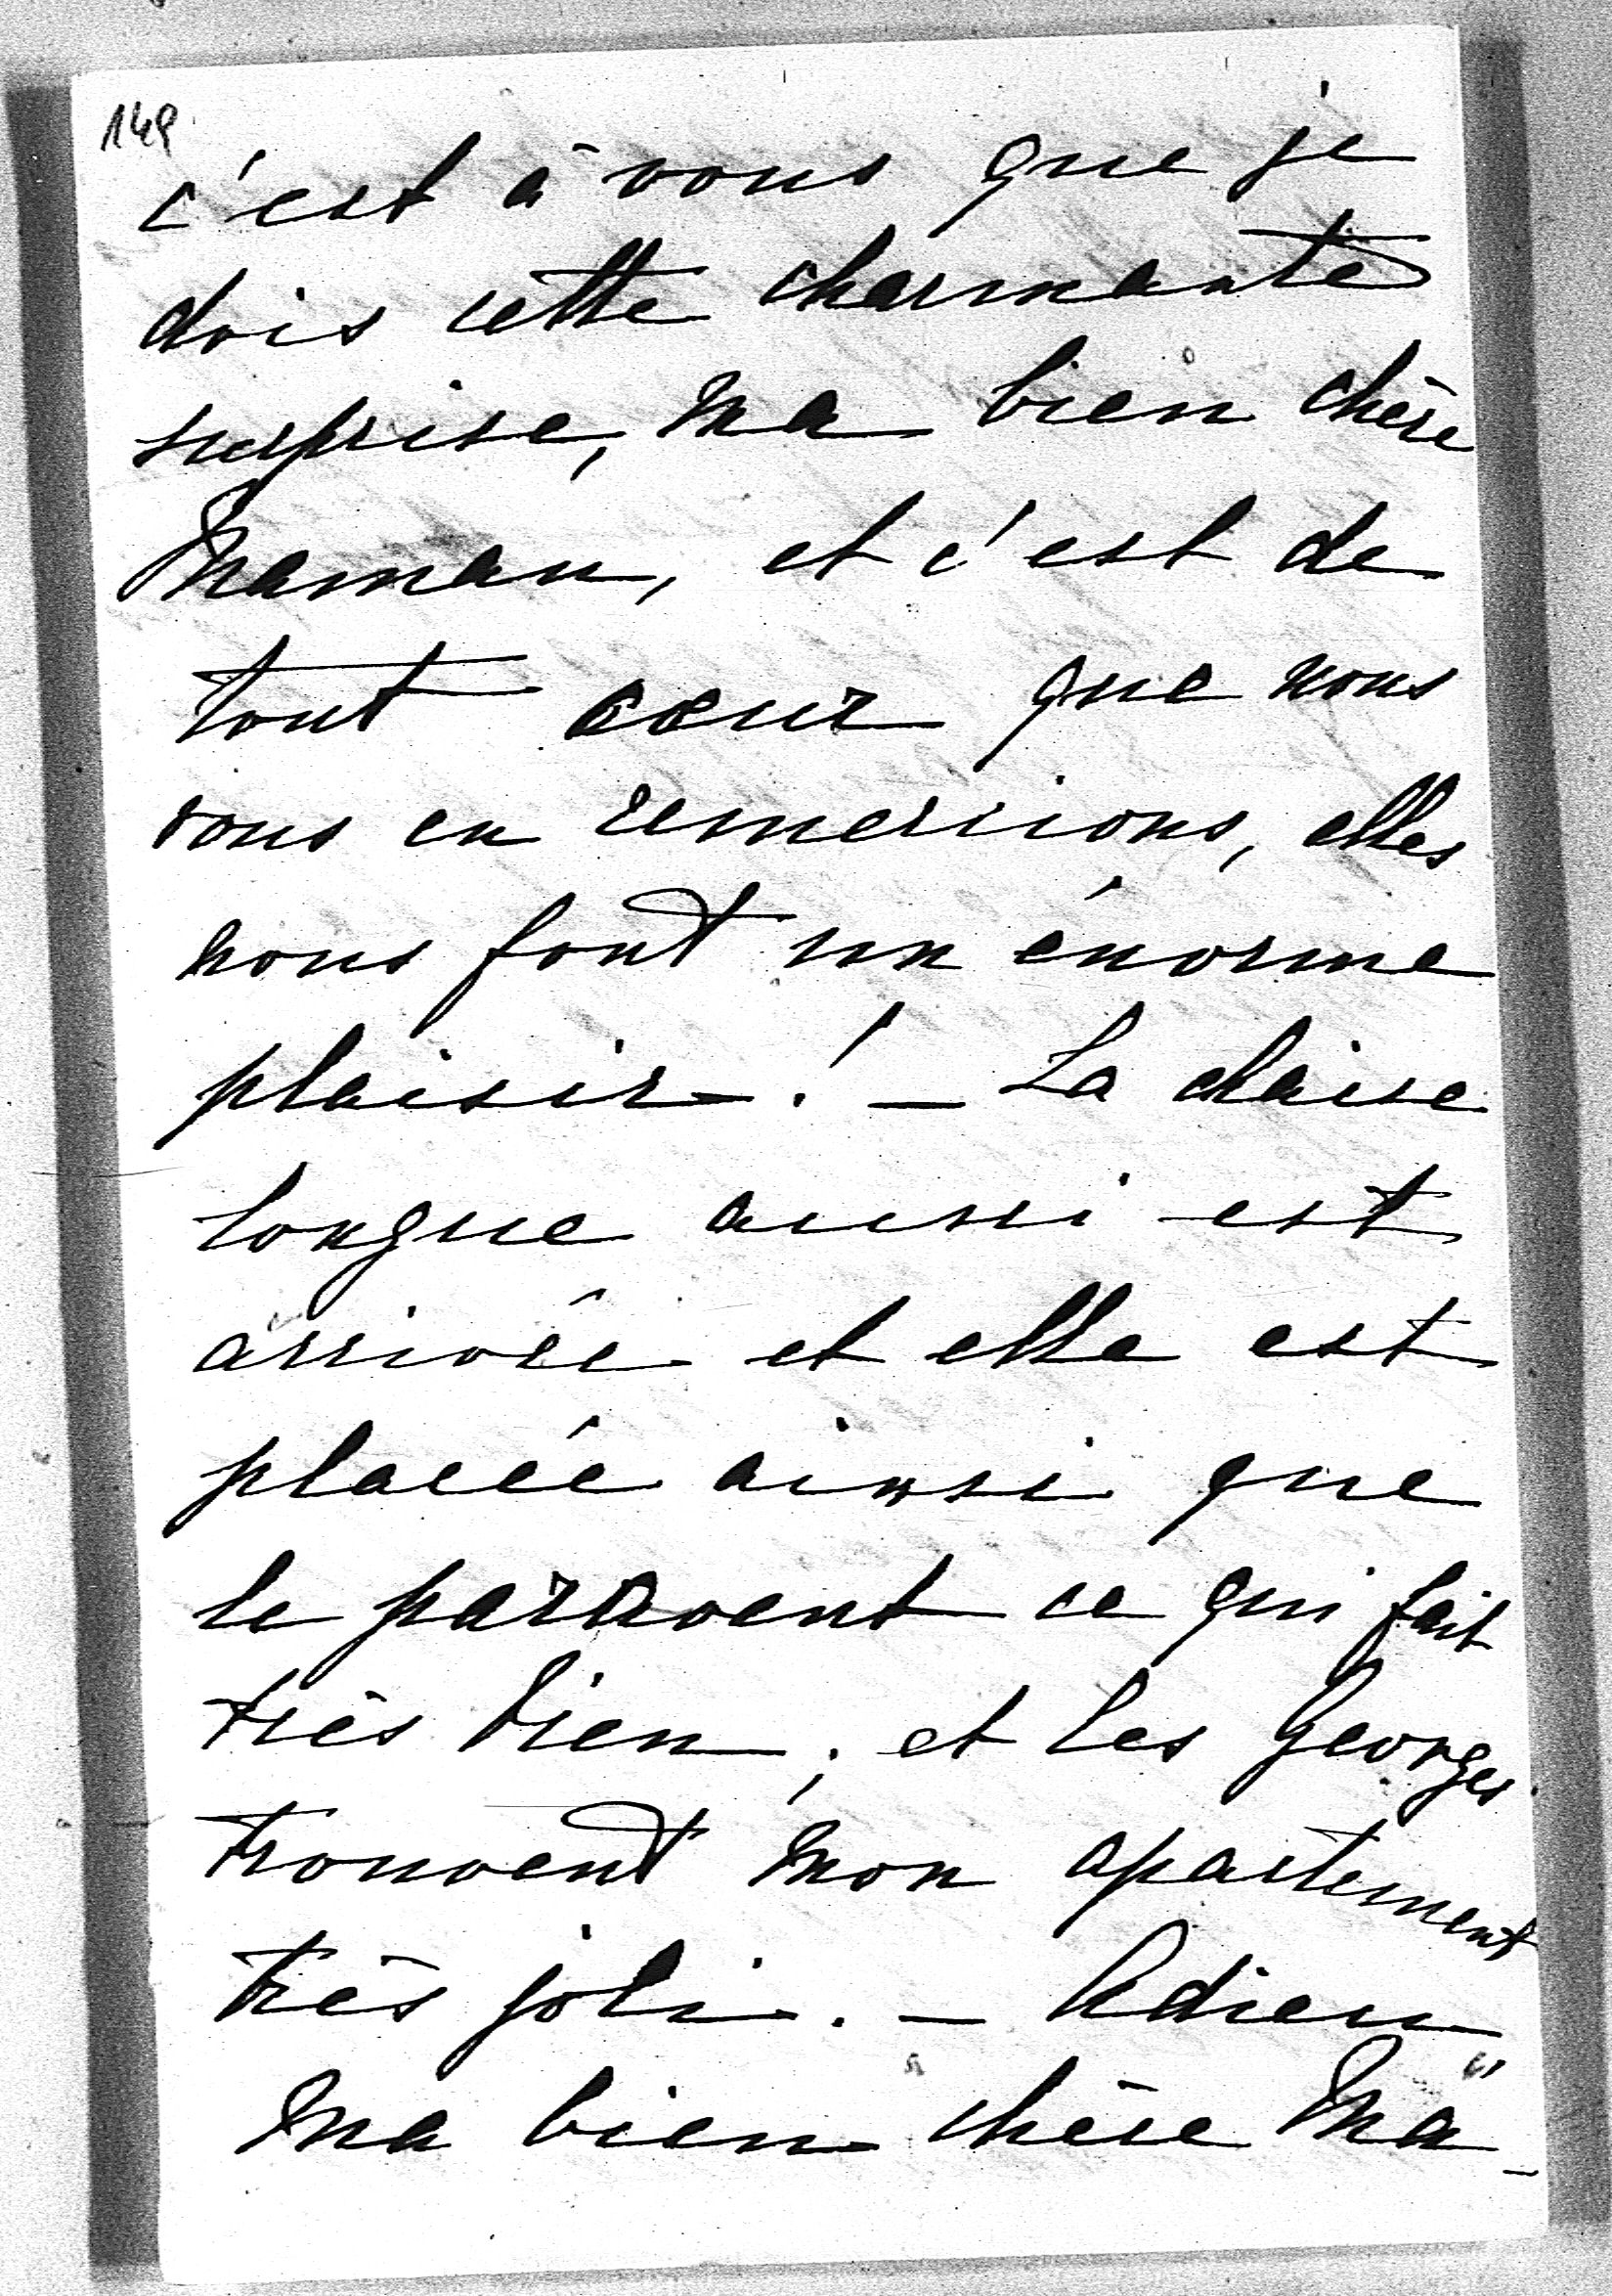 149
c'est à vous que je
dois cette charmante
surprise, Ma bien chère
Maman, et c'est de
tout cœur que nous
vous en remercions, elles
nous font un énorme
plaisir ! — La chaise
longue aussi est
arrivée et elle est
placée ainsi que
le paravent ce qui fait
très bien ; et les Georges
trouvent mon apartement
très joli. — Adieu
Ma bien chère Ma-